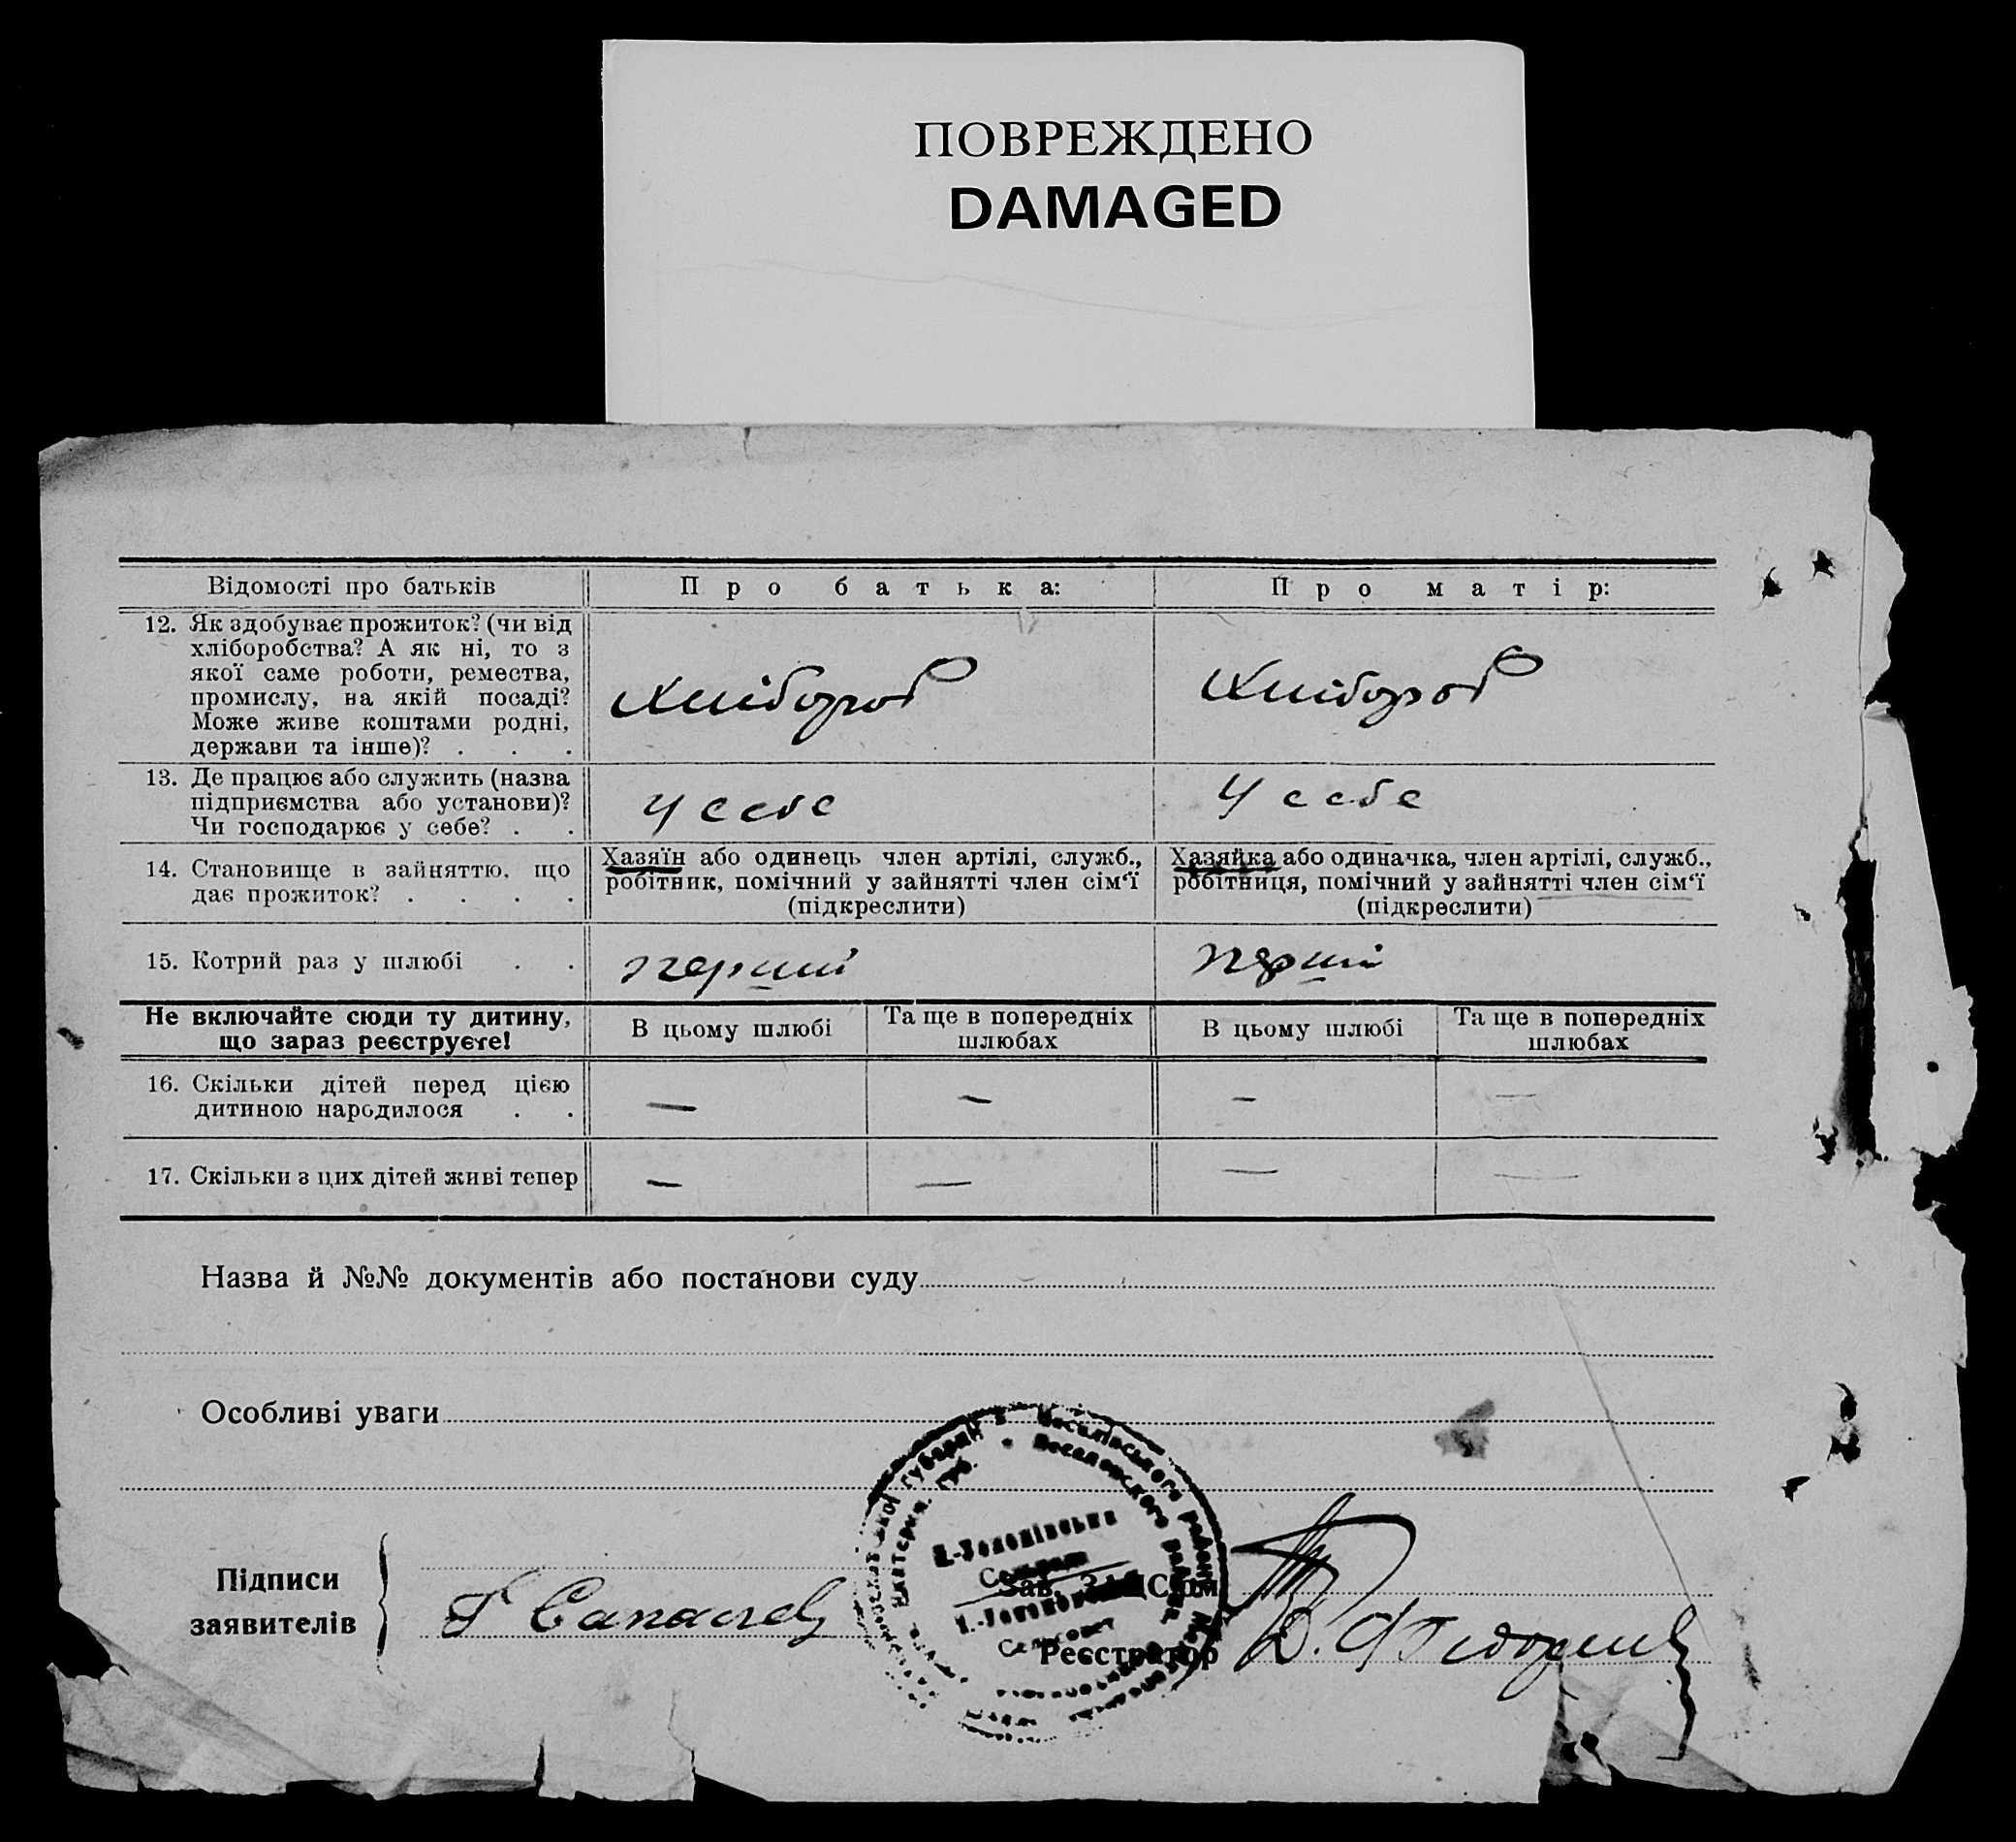 ПОВРЕЖДЕНО
DAMAGED
Відомості про батьків
Про батька:
Про матір:
12. Як здобуває прожиток? (чи від
хліборобства? А як ні, то з
якої саме роботи, ремества,
промислу, на якій посаді?
Може живе коштами родні,
держави та інше)? . . .
Хлібороб
Хлібороб
13. Де працює або служить (назва
підприємства або установи)?
Чи господарює у себе? . .
У себе
У себе
14. Становище в зайняттю, що
дає прожиток? . . . .
Хазяїн або одинець член артілі, служб.,
робітник, помічний у зайнятті член сім‘ї
(підкреслити)
Хазяйка або одиначка, член артілі, служб.,
робітниця, помічний у зайнятті член сім‘ї
(підкреслити)
15. Котрий раз у шлюбі . .
перший
перший
Не включайте сюди ту дитину,
що зараз реєструєте!
В цьому шлюбі
Та ще в попередніх
шлюбах
В цьому шлюбі
Та ще в попередніх
шлюбах
16. Скільки дітей перед цією
дитиною народилося . .
— — — —
17. Скільки з цих дітей живі тепер
— — — —
Назва й №№ документів або постанови суду
Особливі уваги
губерніі Веселівського району
Екатерин. губ. Веселовского района
Підписи
заявителів
Зав.
Реєстратор